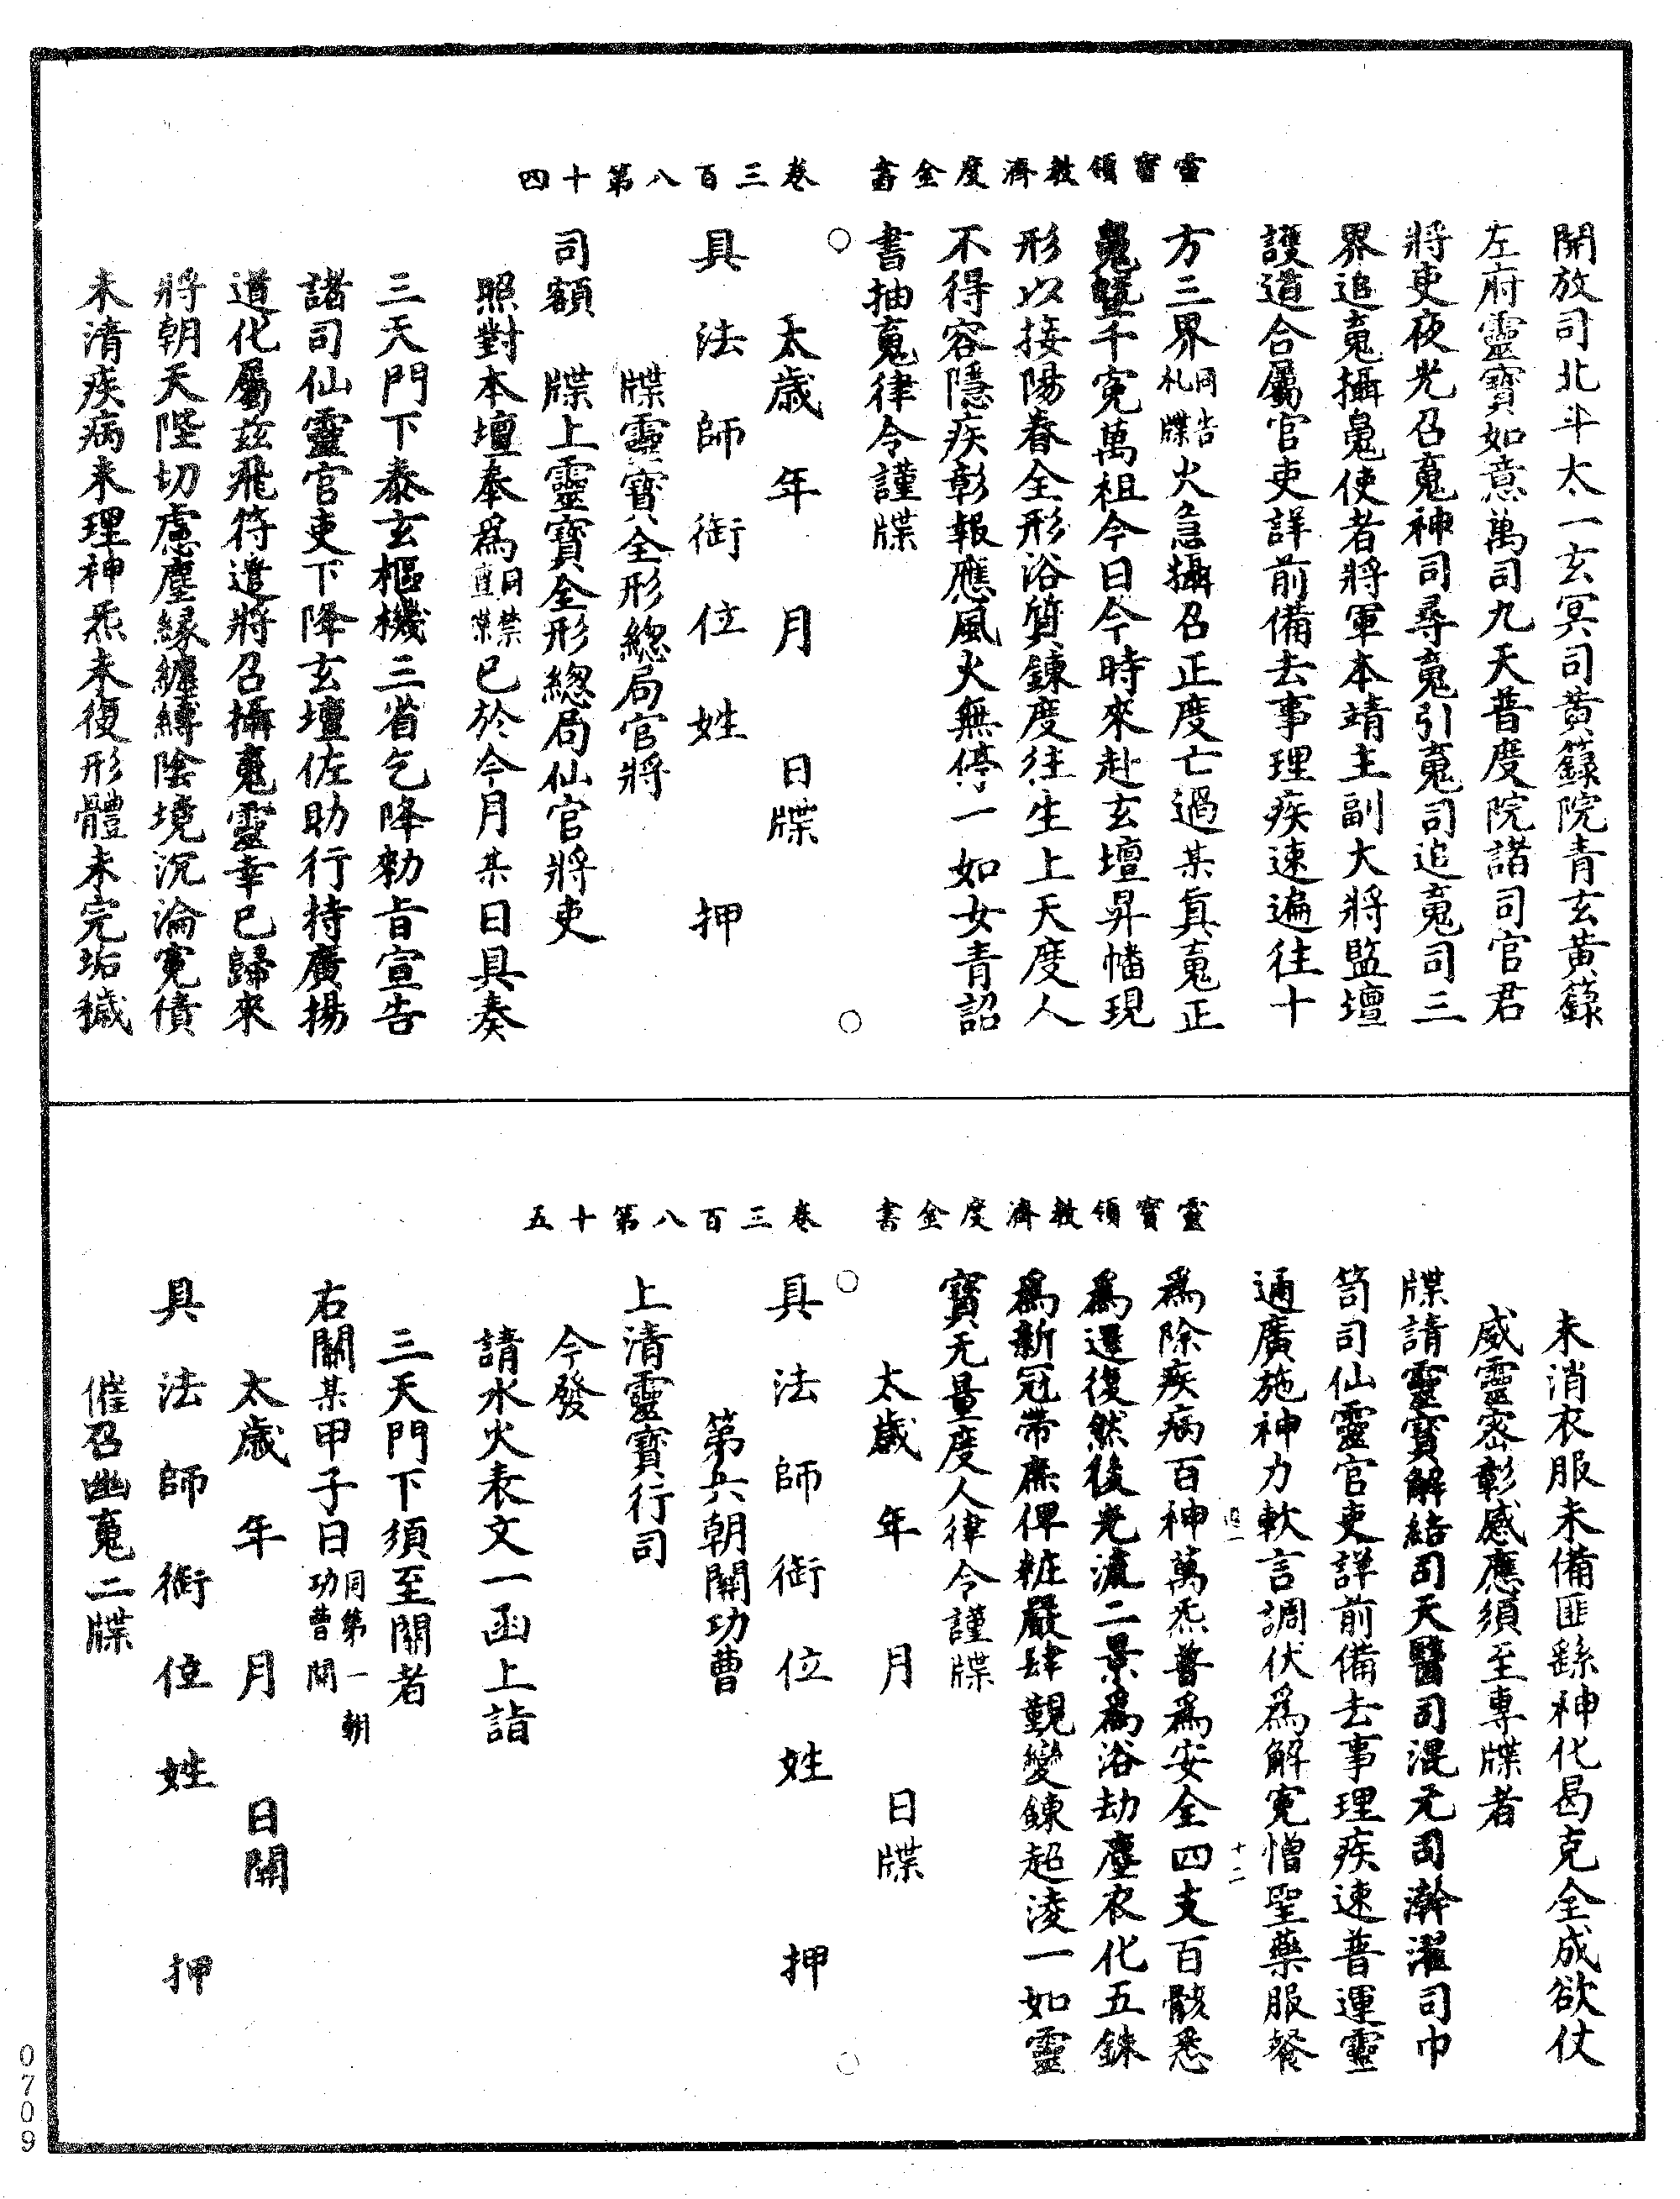 靈寶領教濟度金書　卷三百八第十四
開放司北斗太一玄冥司黃籙院青玄黃籙
左府靈寶如意萬司九天普度院諸司官君
將吏夜光召䰟神司尋䰟引䰟司追䰟司三
界追䰟攝䰟使者將軍本靖主副大將監壇
護道合屬官吏詳前備去事理疾速遍往十
方三界同告札牒火急攝召正度亡過某真䰟正
䰟曁千寃萬祖今日今時來赴玄壇昇幡現
形以接陽春全形浴質鍊度往生上天度人
不得容隱疾彰報應風火無停一如女青詔
書抽䰟律令謹牒
太歲　年　月　日牒
具法師銜位姓　押
牒靈寶全形總局官將
司額　牒上靈寶全形總局仙官將吏
照對本壇奉爲同禁壇牒已於今月某日具奏
三天門下泰玄樞機三省乞降勑旨宣告
諸司仙靈官吏下降玄壇佐助行持廣揚
道化屬兹飛符遣將召攝䰟靈幸已歸來
將朝天陛切慮塵緣纏縛陰境沉淪寃債
未清疾病未理神炁未復形體未完垢穢
靈寶領教濟度金書　卷三百八第十五
未消衣服未備匪繇神化曷克全成欲仗
威靈密彰感應須至專牒者
牒請靈寶解結司天醫司混元司澣濯司巾
笥司仙靈官吏詳前備去事理疾速普運靈
通廣施神力軟言調伏爲解寃憎聖藥服餐
爲除疾病百神萬炁普爲安全四支百骸悉
爲還復然後光流二景爲浴劫塵衣化五銖
爲新冠帶庶俾粧嚴肆覲變鍊超淩一如靈
寶无量度人律令謹牒
太歲　年　月　日牒
具法師銜位姓　押
第六朝關功曹
上清靈寶行司
今發
請水火表文一函上詣
三天門下須至關者
右關某甲子日同第一朝功曹關
太歲　年　月　日關
具法師銜位姓　押
催召幽䰟二牒
十二
0709